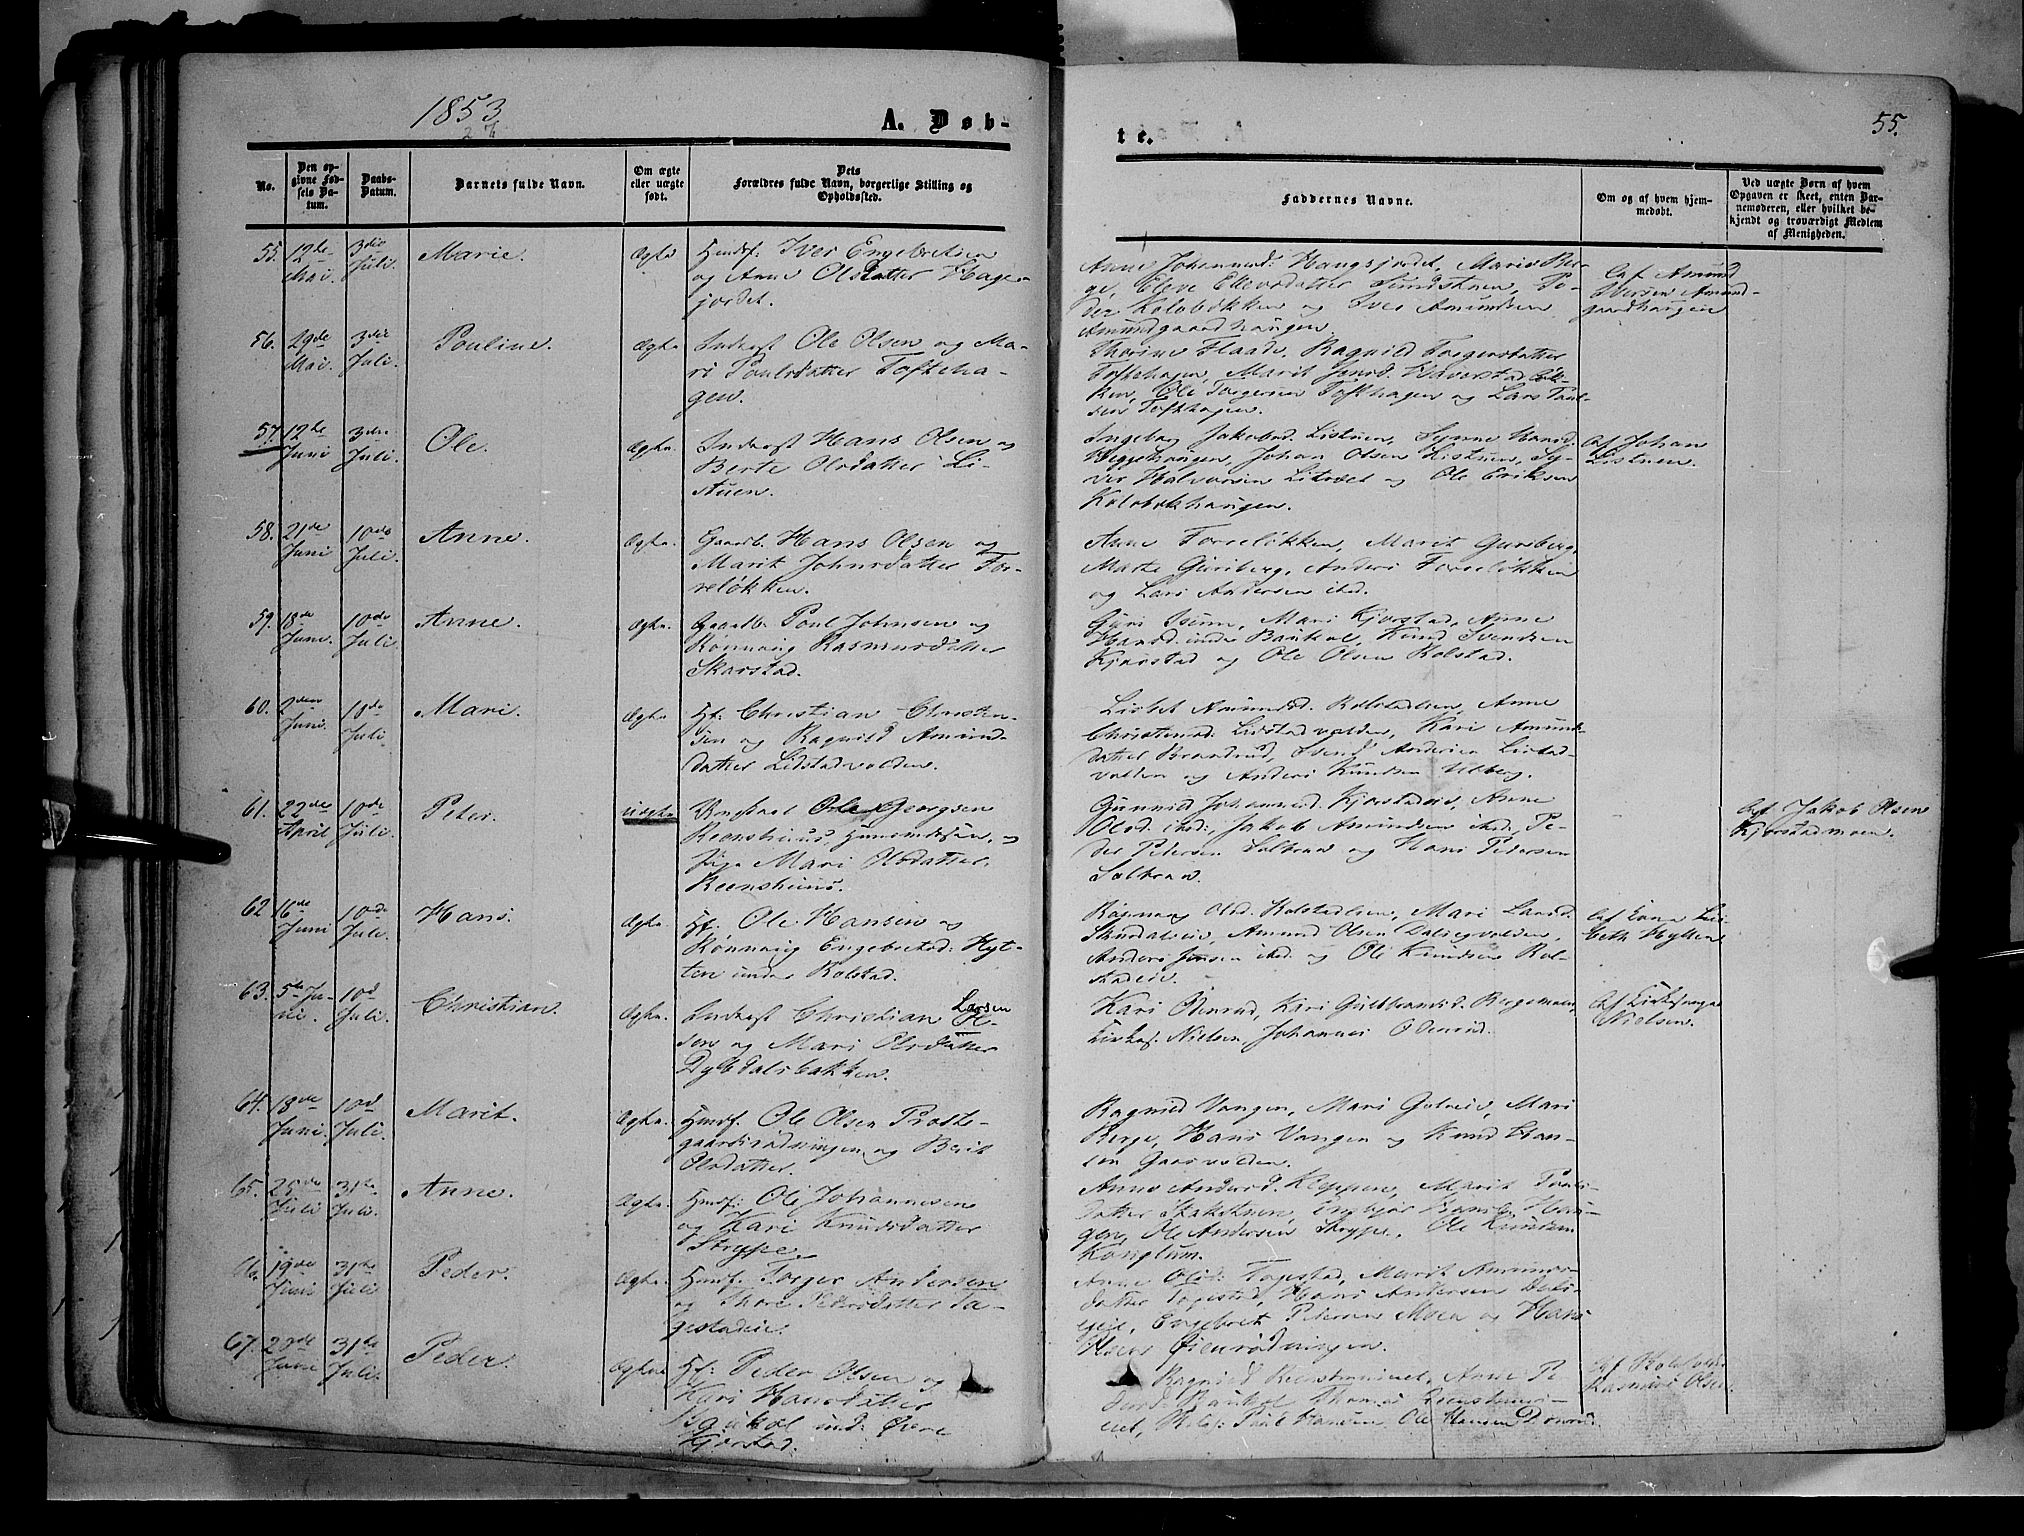 1853
A. Døb-
te.
55.
No.
Den op-
givne Fød-
sels Da-
tum.
Daabs-
Datum.
Barnets fulde Navn.
Om ægte
eller uægte
født.
Dets
Forældres fulde Navn, borgerlige Stilling og
Opholdssted.
Faddernes Navne.
Om og af hvem hjem-
medøbt.
Ved uægte Børn af hvem
Opgaven er skeet, enten Bar-
nemoderen, eller hvilket be-
kjendt og troværdigt Medlem
af Menigheden.
55. 12te Mai. 3die Juli. Marie. Ægte
Huusf. Iver Engebretsen
og Anne Olsdatter Hage-
jordet.
Anne Johannesd. Haugsjordet, Marie Ber-
ge, Eleve Ellevsdatter Sundstuen, Pe-
der Kolobækken og Iver Amundsen
Amundgaardhaugen.
Af Amund
Iversen Amund-
gaardhaugen
56. 29de Mai. 3die Juli. Pouline. Ægte
Inderst Ole Olsen og Ma-
ri Poulsdatter Tofteha-
gen.
Thorine Flaade, Ragnild Torgersdatter
Toftehagen, Marit Jensd. Haverstadløk-
ken, Ole Torgersen Tofthagen og Lars Poul-
sen Tofthagen.
57. 12te Juni 3die Juli. Ole. Ægte
Inderst Hans Olsen og
Berte Olsdatter Li-
stuen.
Ingeborg Jakobsd. Listuen, Synne Hansd.
Veggehaugen, Johan Olsen Listuen, Sy-
ver Halvorsen Listuen og Ole Eriksen
Kolobækhaugen.
Af Johan
Listuen.
58. 21de Juni 10de Juli. Anne. Ægte.
Gaardb. Hans Olsen og
Marit Johnsdatter For-
reløkken.
Anne Forreløkken, Marit Guriberg,
Marte Guriberg, Anders Forreløkken
og Lars Andersen ibid.
59. 18de Juni. 10de Juli Anne. Ægte.
Gaardb. Poul Johnsen og
Rønnaug Rasmusdatter
Skarstad.
Guri Isum, Mari Kjorstad, Anne
Hansd. under Baukol, Knud Svendsen
Kjorstad og Ole Olsen Kolstad.
60. 2den Juni. 10de Juli Mari. Ægte.
Hf. Christian Christen-
sen og Ragnild Amund-
datter Lidstadvolden.
Lisbet Amundsd. Kolstadlien, Anne
Christensd. Lidstadvolden, Kari Amund-
datter Brandrud, Svend Andersen Listad-
volden og Anders Knudsen Ulberg.
61. 22de April 10de Juli. Peter. Uægte
Ungkarl Ole Georgsen
Reenshuus Huusmandssøn, og
Pige Mari Olsdatter
Reenshuus.
Gunnild Johannesd. Kjorstadeie, Anne
Olsd. ibid., Jakob Amundsen ibid., Pe-
der Pedersen Solbraa og Hans Pedersen
Solbraa.
Af Jakob Olsen
Kjorstadmoen.
62 16de Juni 10de Juli. Hans. Ægte.
Hf. Ole Hansen og
Rønnaug Engebretsd. Hyt-
ten under Kolstad.
Rønnaug Olsd. Kolstadlien, Mari Larsd.
Amund Olsen
Anders Jensen ibid. og Ole Knudsen Kol-
stadeie.
Af Hytten
63. 5te Ju-
ni. 10d Juli. Christian. Ægte.
Inderst Christian Larsen Ol-
sen og Mari Olsdatter
Dybdalsbakken.
Kari Odenrud, Kari Guldbrandsd. Bergemoen,
Kirkes. Nielsen, Johannes Odenrud.
Af Kirkesanger
Nielsen.
64. 18de Juni. 10d Juli. Marit. Ægte.
Huusf. Ole Olsen Præste-
gaardsrødningen og Berit
Olsdatter.
Ragnild Vangen, Mari Golneie, Mari
Berge, Hans Vangen og Knud Han-
sen Gaarsvolden.
65. 25de Juli 31te Juli. Anne. Ægte.
Huusf. Ole Johannesen
og Kari Knudsdatter
Strype.
Anne Andersd. Kleppen, Marit Pouls-
datter Hau-
gen, Ole Andersen Strype, Ole Knudsen
Konglum.
66. 19de Juni 31te Juli Peder. Ægte.
Huusf. Torger Andersen
og Thore Pedersdatter To-
gestadeie.
Anne Olsd. Togestad, Marit Amunds-
datter Togestad, Hans Andersen
Engebret Pedersen Moen og Hans
Olsen Øienrødningen.
67. 20de Juni 31te Juli. Peder. Ægte
Hf. Peder Olsen og
Kari Hansdatter
Baukol und. Øvre
Kjorstad.
Ragnild Anne Pe-
dersd. Baukol, Thomas
Poul Hansen, Ole Hansen
Af
Rasmus Olsen.